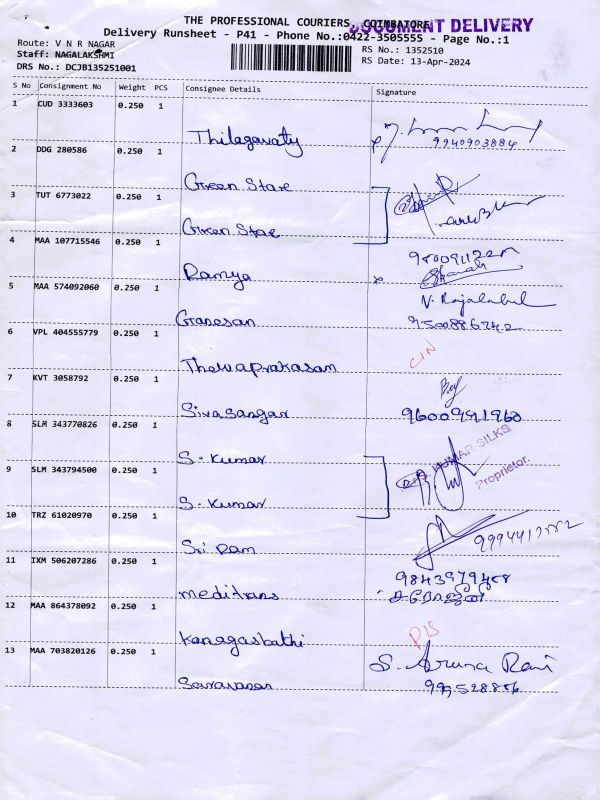 THE PROFESSIONAL COURIERS, COIMBATORE
DOCUMENT DELIVERY
Delivery Runsheet - P41 - Phone No.:0422-3505555 - Page No.:1
Route: V N R NAGAR
RS No.: 1352510
Staff: NAGALAKSHMI
RS Date: 13-Apr-2024
DRS No.: DCJB135251001
S No Consignment No Weight PCS Consignee Details Signature
1 CUD 3333603 0.250 1
Thilagavaty 9940903884
2 DDG 280586 0.250 1
Green Stare
3 TUT 6773022 0.250 1
Green Stare
4 MAA 107715546 0.250 1
Ramya
5 MAA 574092060 0.250 1
Ganesan
6 VPL 404555779 0.250 1
CIN
7 KVT 3058792 0.250 1
Sivasangar 9600991960
8 SLM 343770826 0.250 1
S. Kumar
KUMAR SILKS
Proprietor.
9 SLM 343794500 0.250 1
S. Kumar
10 TRZ 61020970 0.250 1
Sri Ram
11 IXM 506207286 0.250 1
meditrans
12 MAA 864378092 0.250 1
13 MAA 703820126 0.250 1
S. Aruna Rani